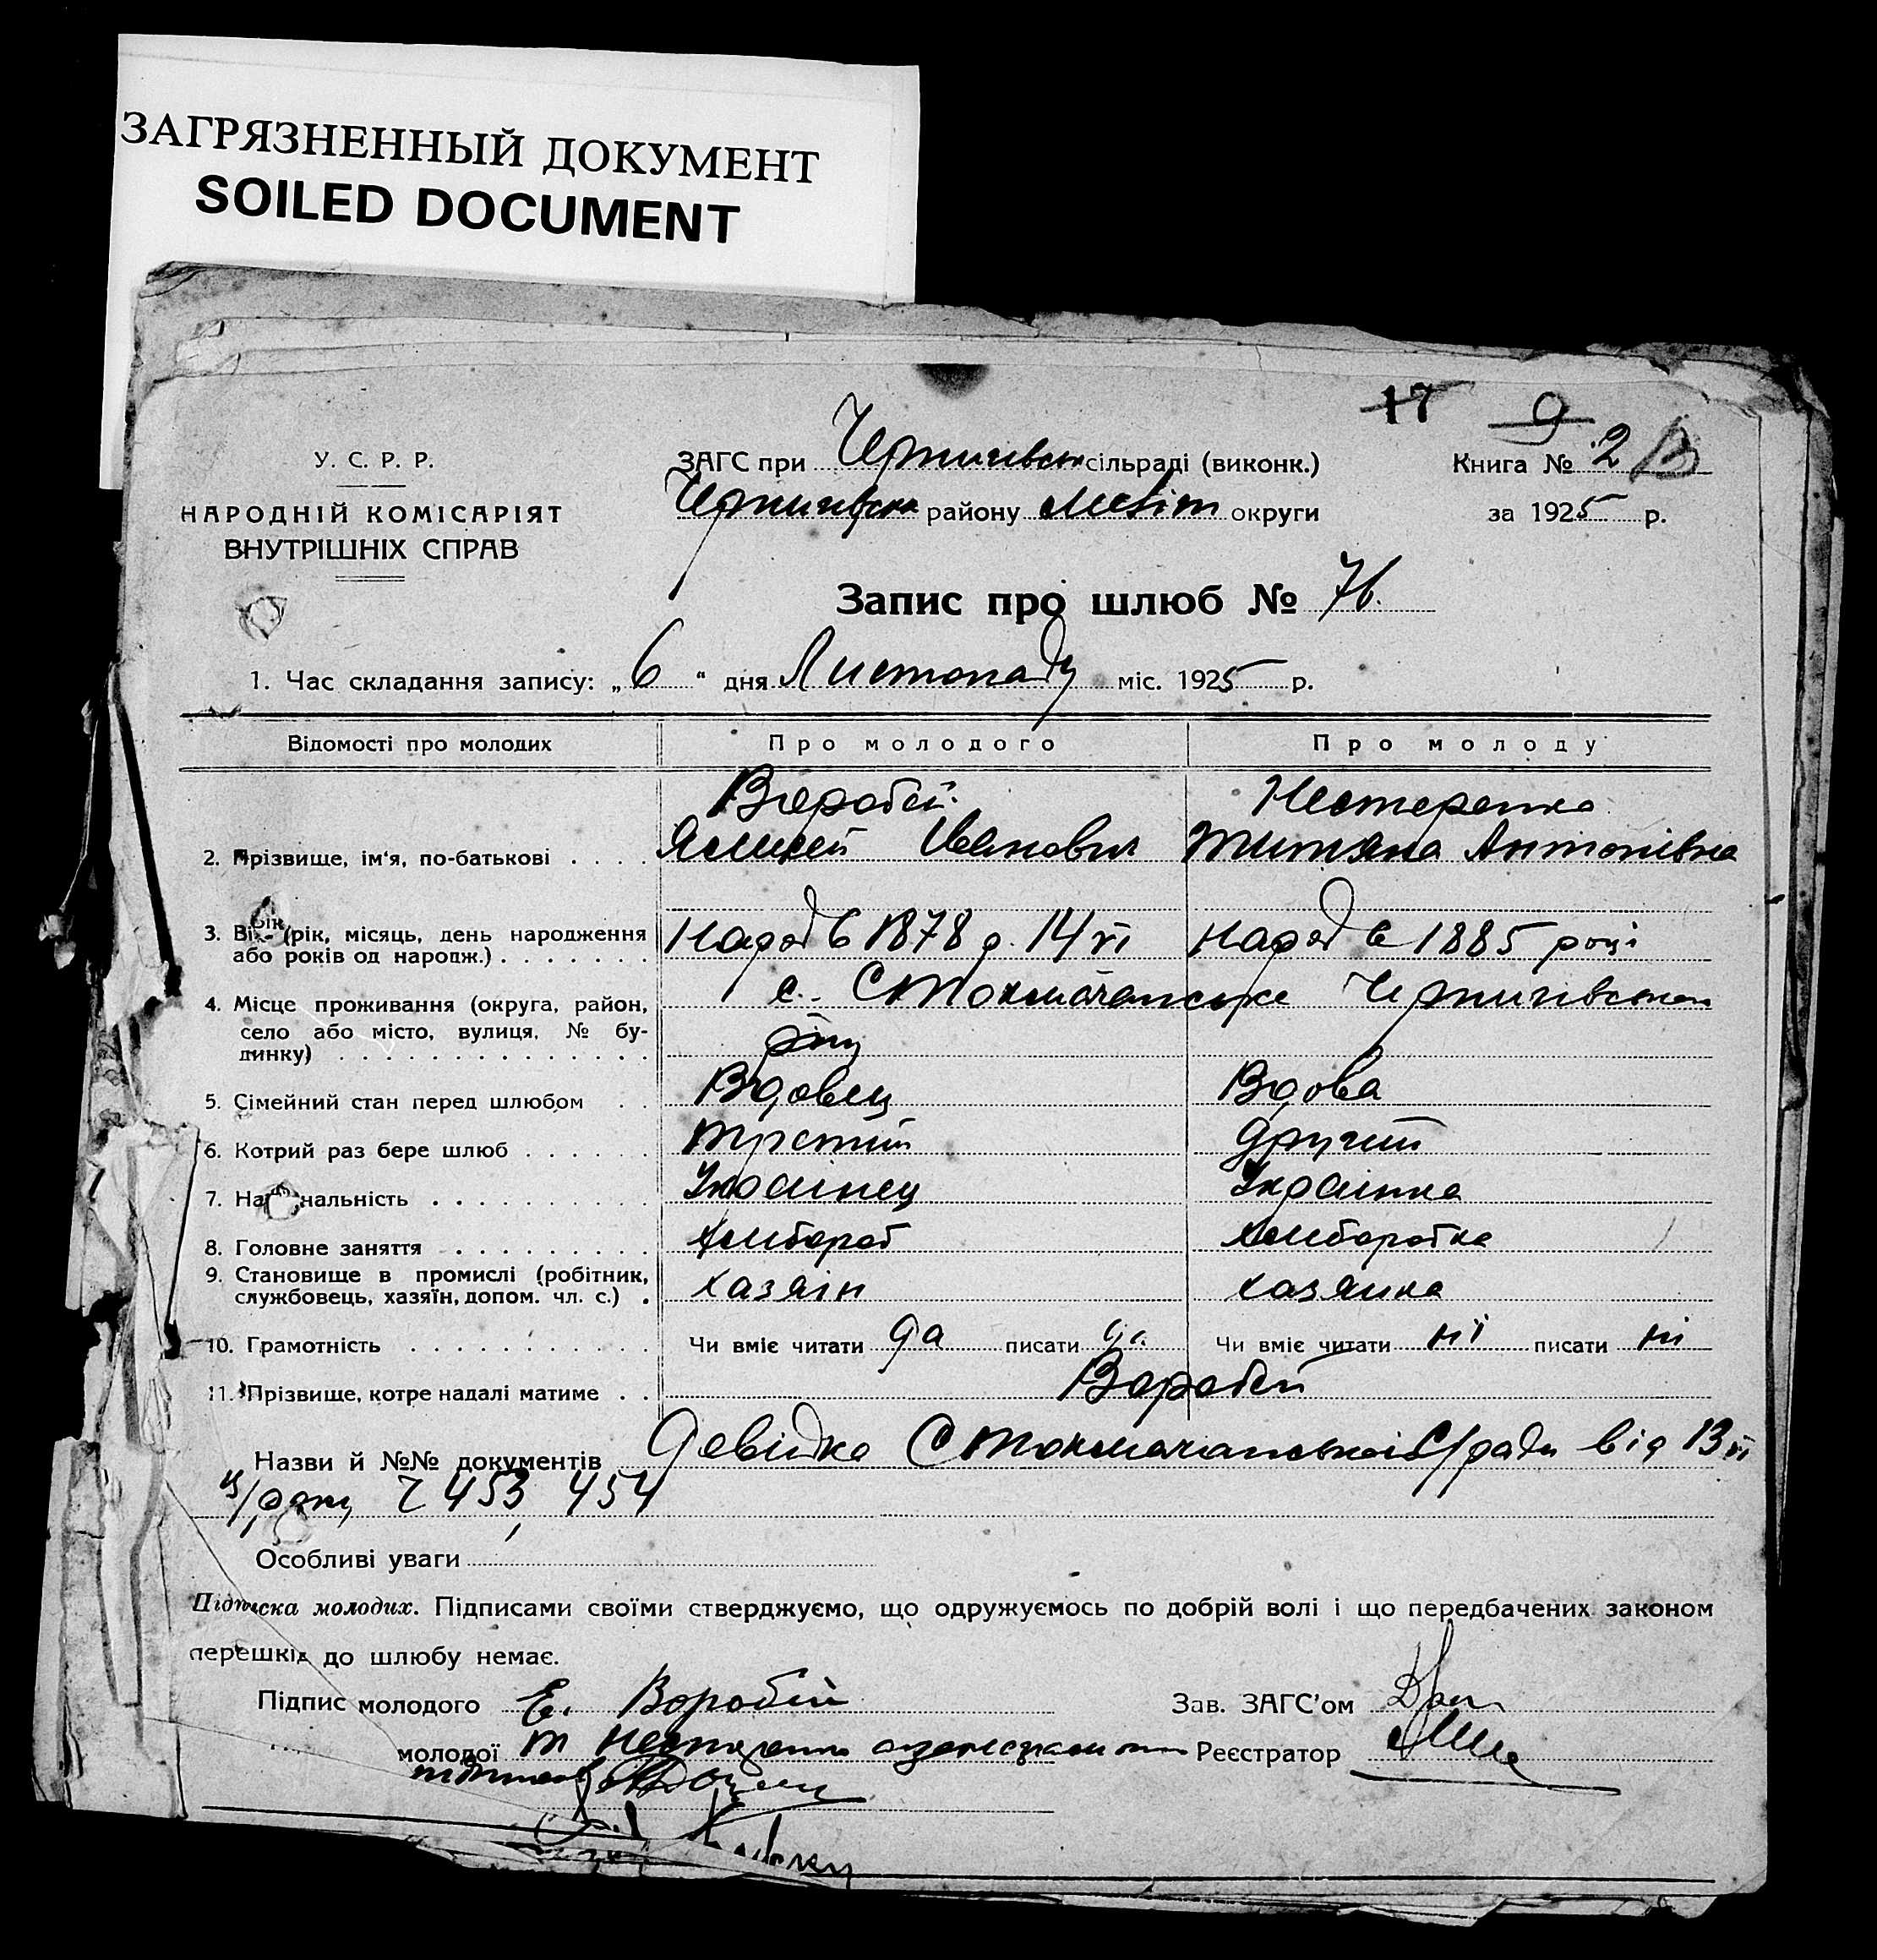 ЗАГРЯЗНЕННЫЙ ДОКУМЕНТ
SOILED DOCUMENT
17 9
У. С. Р. Р.
НАРОДНІЙ КОМІСАРІЯТ
ВНУТРІШНІХ СПРАВ
ЗАГС при Чернигівськ сільраді (виконк.)
Чернигівська району Меліт округи
Книга № 2
за 1925 р.
Запис про шлюб № 76.
1. Час складання запису: „6" дня Листопаду міс. 1925 р.
Відомості про молодих Про молодого Про молоду
Воробей Нестеренко
2. Прізвище, ім'я, по-батькові . . . . Іванович Титяна Антонівна
3. Вік (рік, місяць, день народження або років од народж.) . . . . . . . Народ в 1878 р. 14 VI Народ в 1885 році
4. Місце проживання (округа, район, село або місто, вулиця, № будинку) . . . . . . . . . . . . . . с. Стокмачанське Чернигівського
р-ну
5. Сімейний стан перед шлюбом . . Вдовец Вдова
6. Котрий раз бере шлюб . . . . . . третий другий
7. Національність . . . . . . . . . Українец Українка
8. Головне заняття . . . . . . . . . Хлибороб Хлиборобка
9. Становище в промислі (робітник, службовець, хазяїн, допом. чл. с.) . хазяін хазяика
10. Грамотність . . . . . . . . . . . Чи вміє читати да писати да Чи вміє читати ні писати ні
11. Прізвище, котре надалі матиме . . Воробей
Назви й №№ документів Довідка Стокмачанської С/ради від 13
ц/року 453, 454
Особливі уваги
Підписка молодих. Підписами своїми стверджуємо, що одружуємось по добрій волі і що передбачених законом
перешкід до шлюбу немає.
Підпис молодого Е. Воробей Зав. ЗАГС'ом
молодої Т Нестеренко Реєстратор